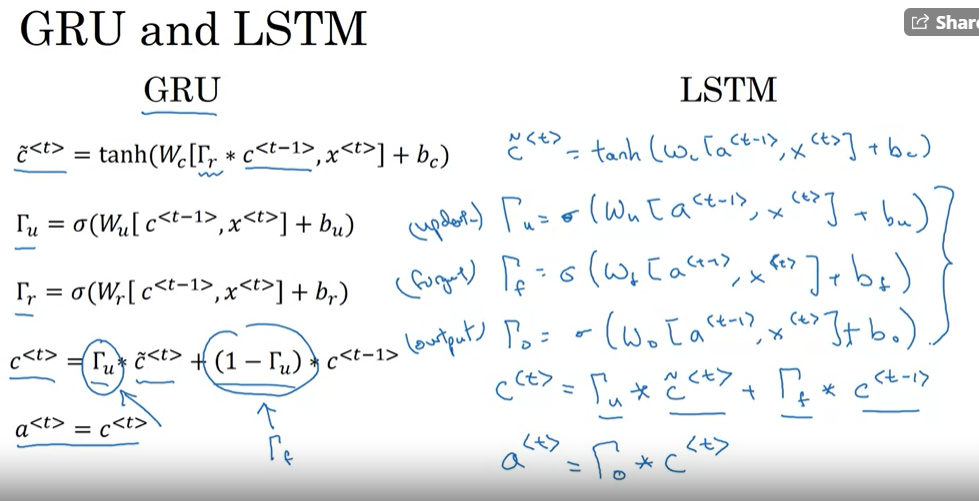 GRU and LSTM
Share
GRU
c̃<t> = tanh(Wc[Γr * c<t−1>, x<t>] + bc)
Γu = σ(Wu[ c<t−1>, x<t>] + bu)
Γr = σ(Wr[ c<t−1>, x<t>] + br)
c<t> = Γu * c̃<t> + (1 − Γu) * c<t−1>
a<t> = c<t>
Γf
LSTM
c̃<t> = tanh(Wc[a<t-1>, x<t>] + bc)
(update) Γu = σ(Wu[a<t-1>, x<t>] + bu)
(forget) Γf = σ(Wf[a<t-1>, x<t>] + bf)
(output) Γo = σ(Wo[a<t-1>, x<t>] + bo)
c<t> = Γu * c̃<t> + Γf * c<t-1>
a<t> = Γo * c<t>